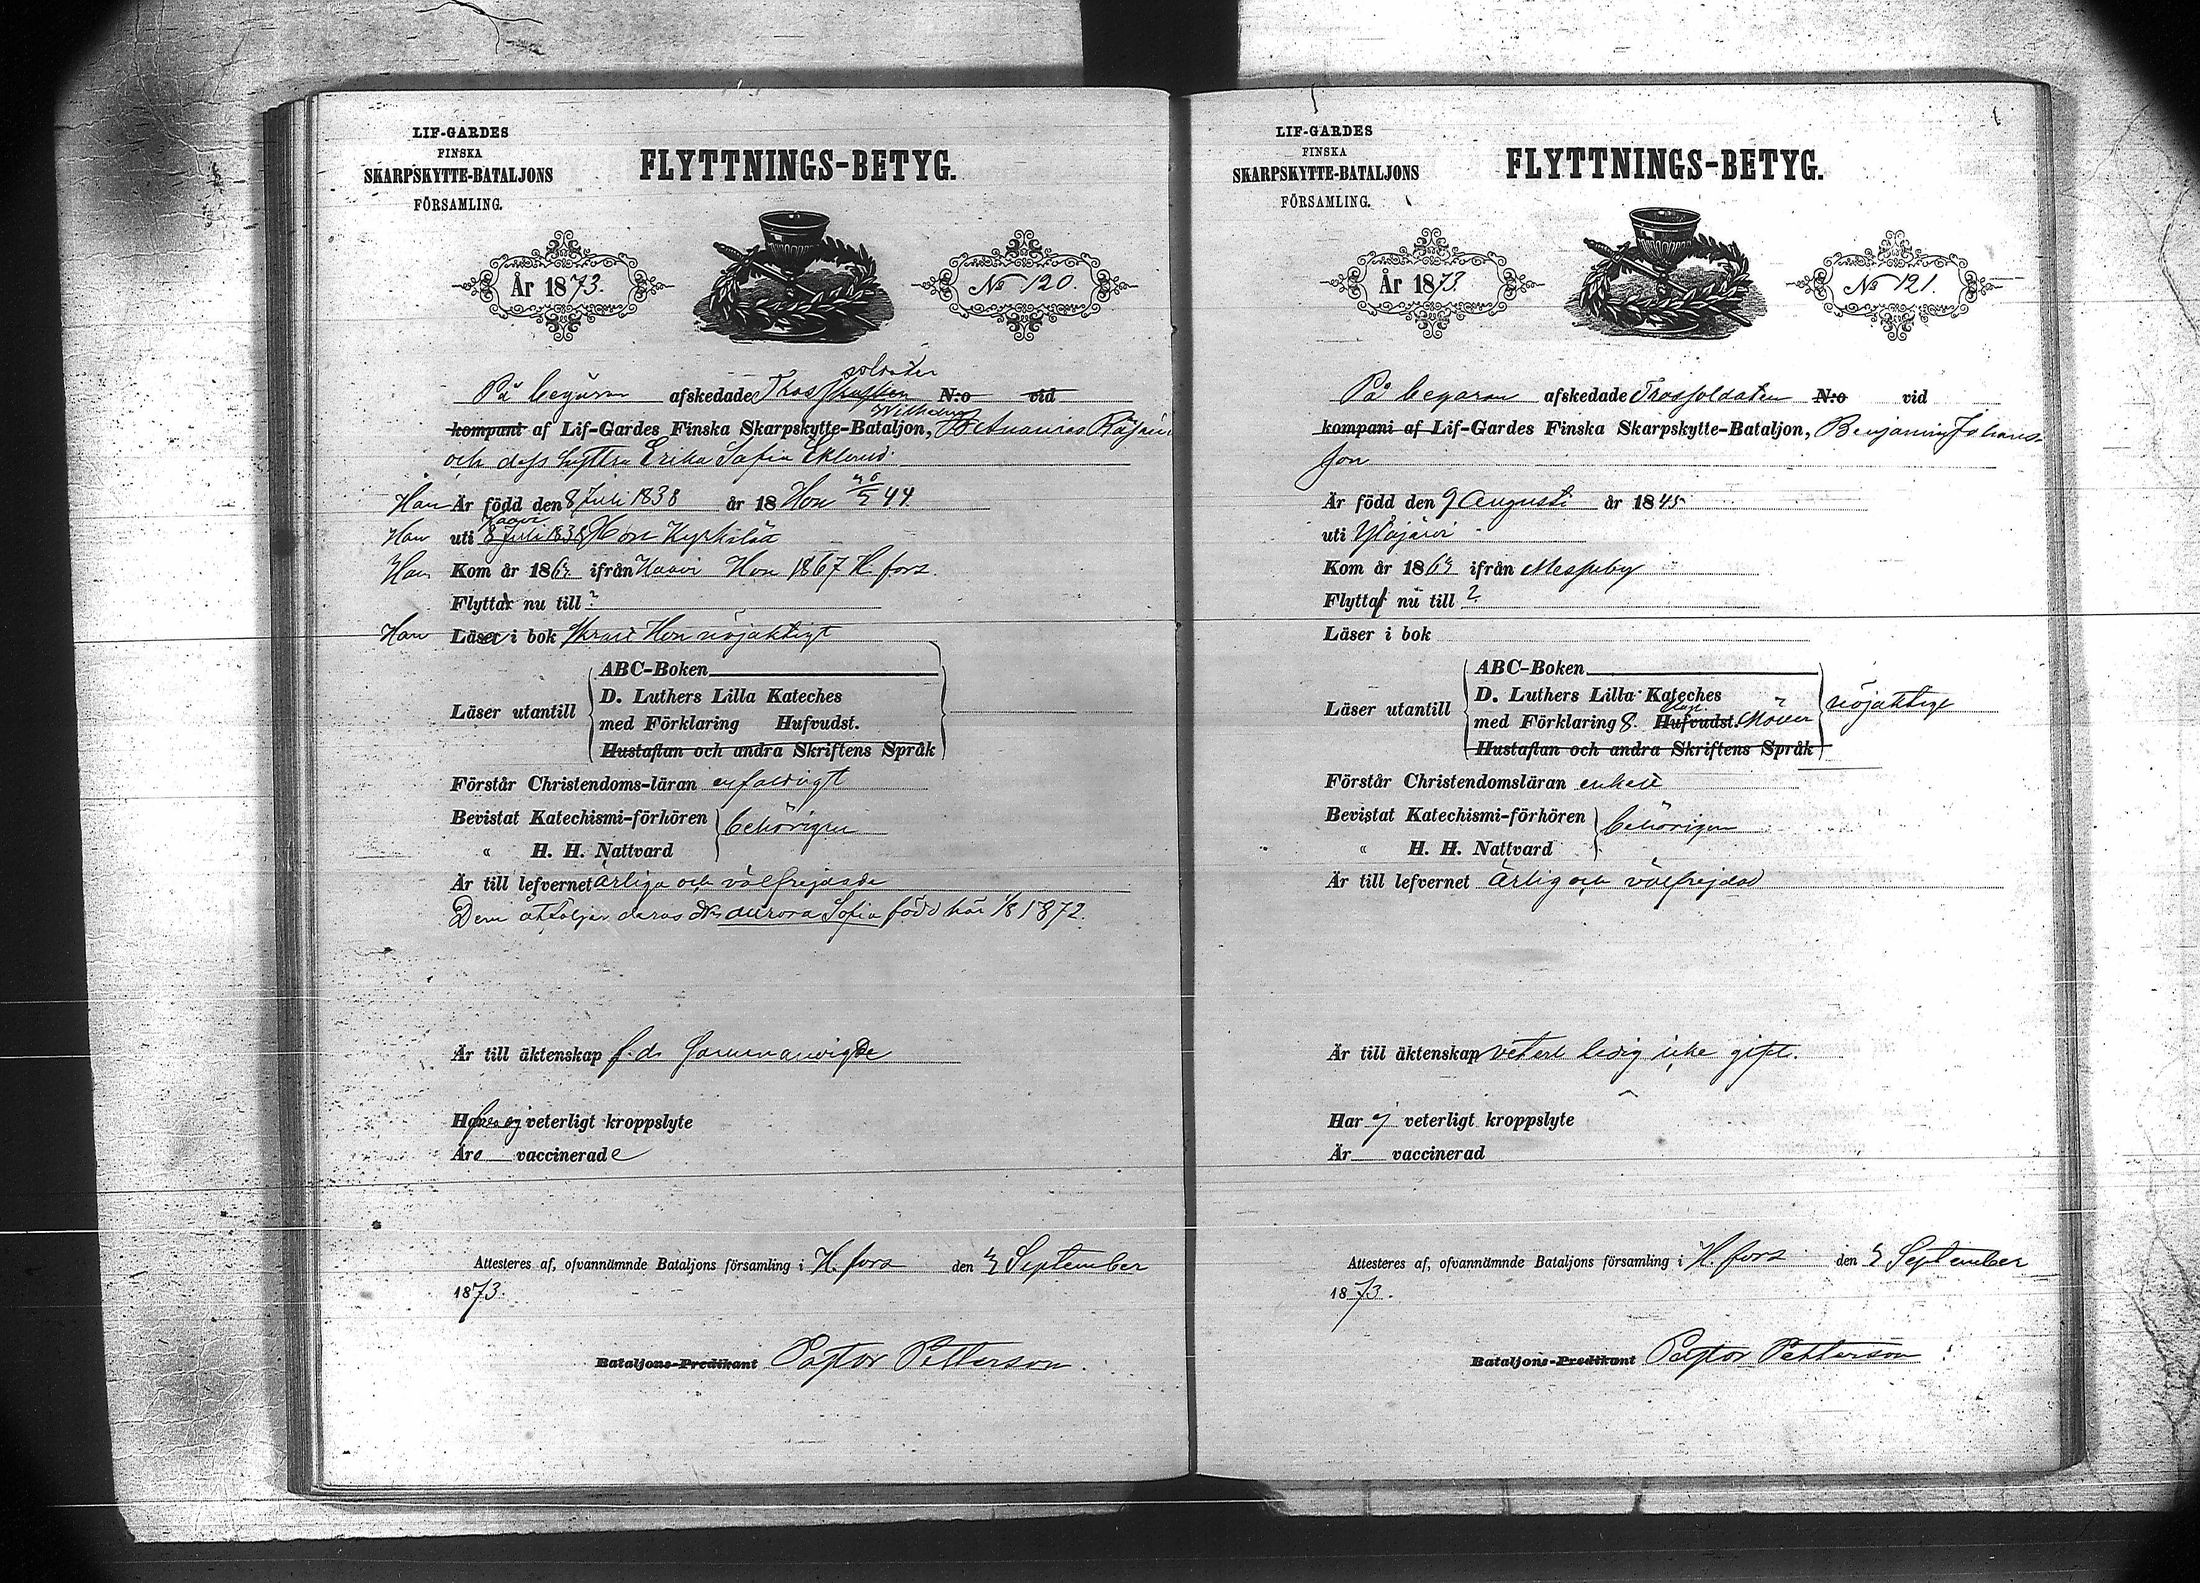 LIF-GARDES
FINSKA
SKARPSKYTTE-BATALJONS
FÖRSAMLING.
FLYTTNINGS-BETYG.
År 1873.
No 120.
soldaten
På begäran afskedade Tros N:o vid
Wilhelm
kompani af Lif-Gardes Finska Skarpskytte-Bataljon,
och dess hustru Erika Sofia Eklund
Han Är född den 8 Juli 1838 år 18 Hon /5 44.
Han uti 8 Juli 1838 Hon Kyrkslät
Han Kom år 186 ifrån Hon 1867 H.fors.
Flyttar nu till ?
Han Läser i bok Hon nöjaktigt
Läser utantill
ABC-Boken
D. Luthers Lilla Kateches
med Förklaring Hufvudst.
Hustaflan och andra Skriftens Språk
Förstår Christendoms-läran enfaldigt
Bevistat Katechismi-förhören
behörigen
" H. H. Nattvard
Är till lefvernet ärliga och välfrejdade
Dem åtföljer deras Aurora Sofia född här 1/8 1872.
Är till äktenskap f.d. sammanvigde
Har ej veterligt kroppslyte
Äro vaccinerade
Attesteres af, ofvannämnde Bataljons församling i H.fors den September
1873.
Bataljons-Predikant Pastor Petterson.
LIF-GARDES
FINSKA
SKARPSKYTTE-BATALJONS
FÖRSAMLING.
FLYTTNINGS-BETYG.
År 1873
No 121.
På begäran afskedade Trossoldaten N:o vid
kompani af Lif-Gardes Finska Skarpskytte-Bataljon, Benjamin Johans-
son
Är född den 9 Augusti år 1845
uti Ylöjärvi
Kom år 186 ifrån Messuby
Flyttar nu till ?
Läser i bok
Läser utantill
ABC-Boken
D. Luthers Lilla Kateches
med Förklaring 8. Hufvudst.
nöjaktige
Hustaflan och andra Skriftens Språk
Förstår Christendomsläran enkelt
Bevistat Katechismi-förhören
behörigen
" H. H. Nattvard
Är till lefvernet ärlig och välfrejdad
Är till äktenskap veterl. ledig icke gift.
Har ej veterligt kroppslyte
Är vaccinerad
Attesteres af, ofvannämnde Bataljons församling i H.fors den September
1873.
Bataljons-Predikant Pastor Petterson